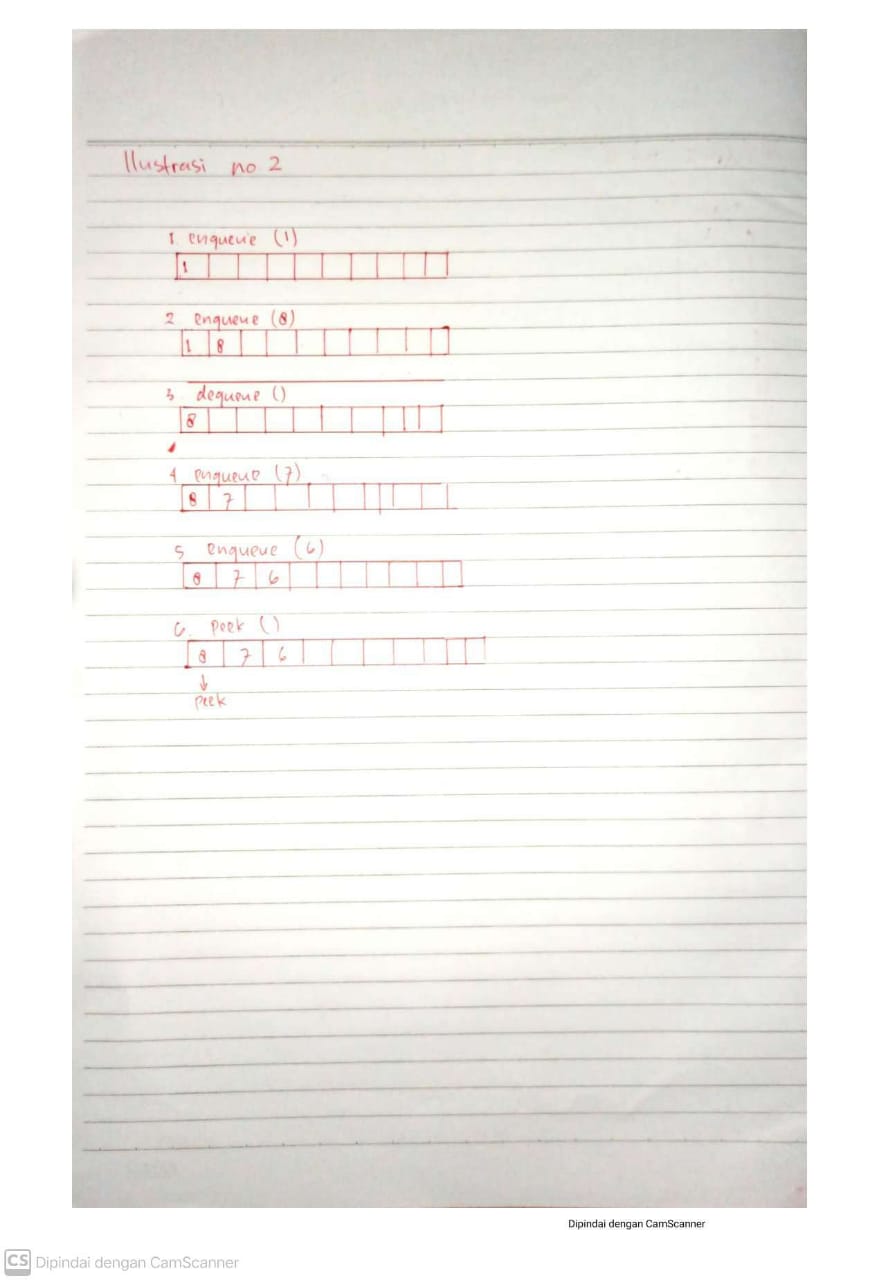 Ilustrasi no 2
1. enqueue (1)
1
2 enqueue (8)
1 8
3 dequeue ()
8
4 enqueue (7)
8 7
5 enqueue (6)
8 7 6
6. peek ()
8 7 6
↓
peek
Dipindai dengan CamScanner
CS Dipindai dengan CamScanner